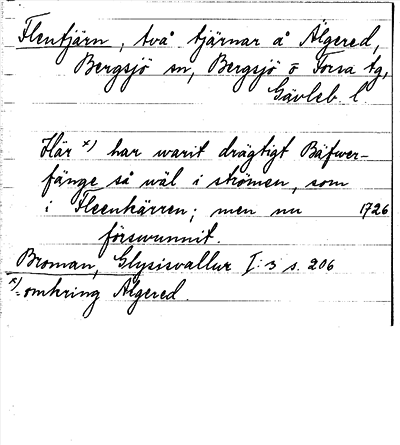 Flentjärn, två tjärnar å Älgered,
Bergsjö sn, Bergsjö o Forsa tg,
Gävleb. l.
Här x) har warit drägtigt Bäfwer-
fänge så wäl i strömen, som
i Fleenkärren; men nu 1726
förswunnit.
Broman, Glysisvallur I:3 s. 206
x) omkring Älgered.